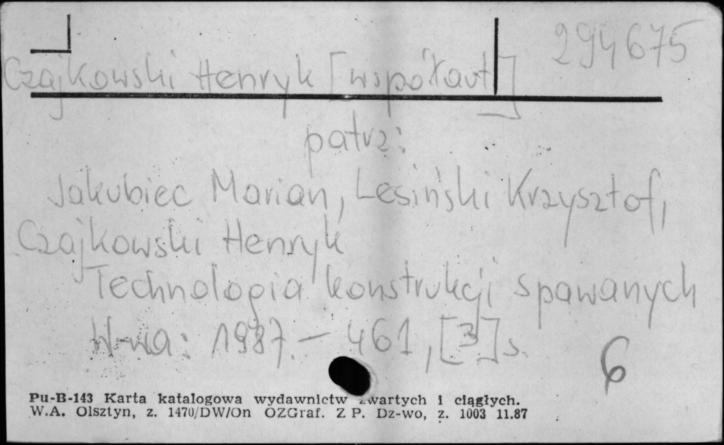 294675
Czajkowski Henryk [współaut]
patrz:
Jakubiec Marian, Lesiński Krzysztof,
Czajkowski Henryk
Technologia konstrukcji spawanych
W-wa: 1987. - 461, [3] s.
6
Pu-B-143 Karta katalogowa wydawnictw zwartych i ciągłych.
W.A. Olsztyn, z. 1470/DW/On OZGraf. Z P. Dz-wo, z. 1003 11.87